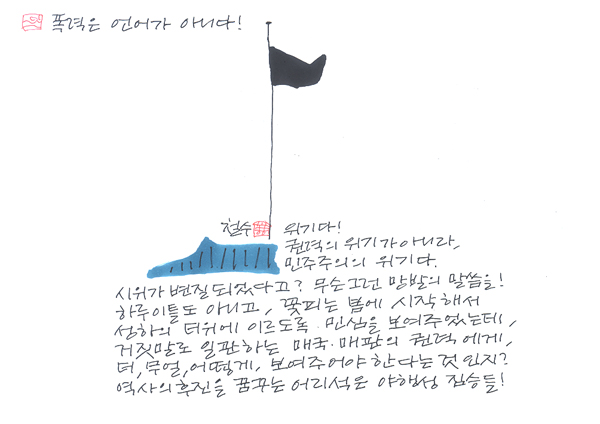 폭력은 언어가 아니다!
철수 위기다!
권력의 위기가 아니라,
민주주의의 위기다.
시위가 변질되었다고? 무슨 그런 망발의 말씀을!
하루이틀도 아니고, 꽃피는 봄에 시작해서
성하의 더위에 이르도록 민심을 보여주었는데,
거짓말로 일관하는 매국·매판의 권력에게,
더, 무얼, 어떻게, 보여주어야 한다는 것인지?
역사의 후진을 꿈꾸는 어리석은 야행성 짐승들!